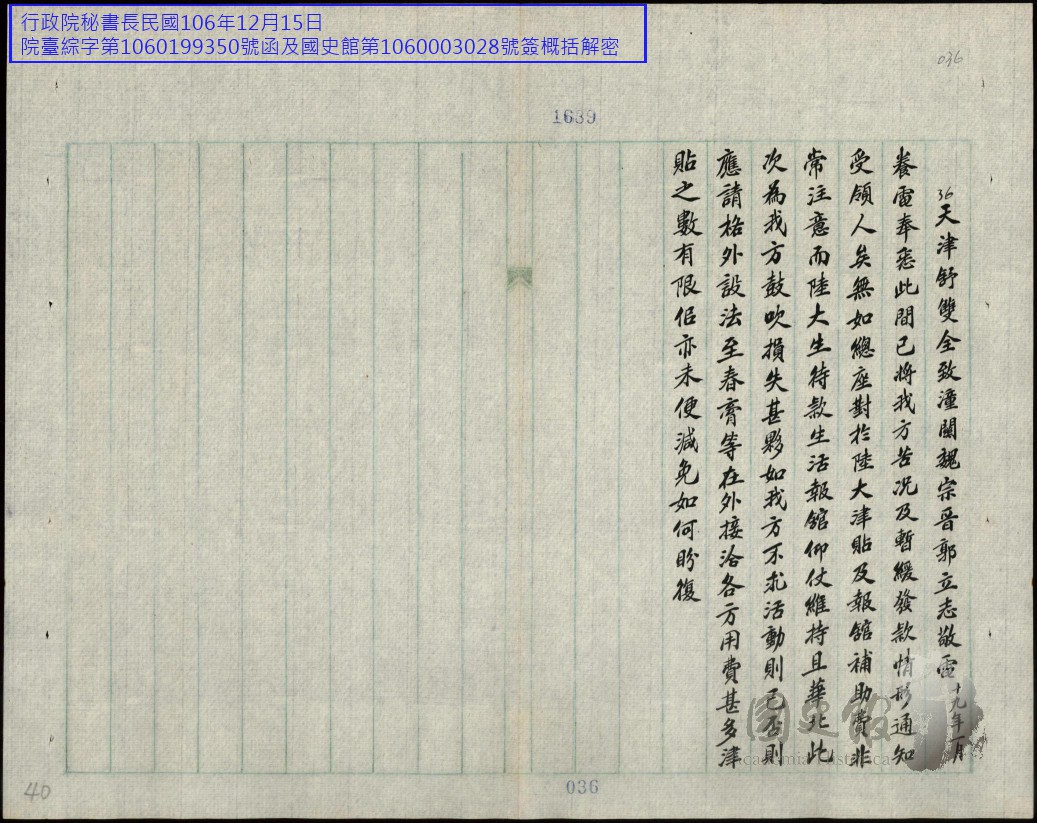 行政院秘書長民國106年12月15日
院臺綜字第1060199350號函及國史館第1060003028號簽概括解密
036
1639
36天津舒雙全致潼關魏宗晉郭立志敬電十九年一月
養電奉悉此間已將我方苦況及暫緩發款情形通知
受領人矣無如總座對於陸大津貼及報館補助費非
常注意而陸大生待款生活報館仰仗維持且華北此
次為我方鼓吹損失甚夥如我方不求活動則已否則
應請格外設法至春膏等在外接洽各方用費甚多津
貼之數有限但亦未便減免如何盼復
國史館
Academia Historica
036
40